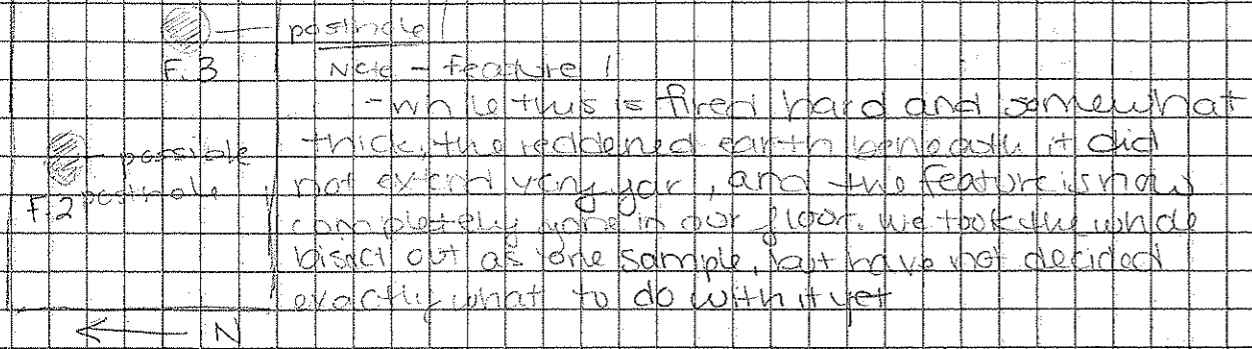 posthole
F.3
Note - feature 1
- while this is fired hard and somewhat
thick, the reddened earth beneath it did
possible
not extend very far, and the feature is now
posthole
F.2
completely gone in our floor. We took the whole
bisect out as one sample, but have not decided
exactly what to do with it yet
N